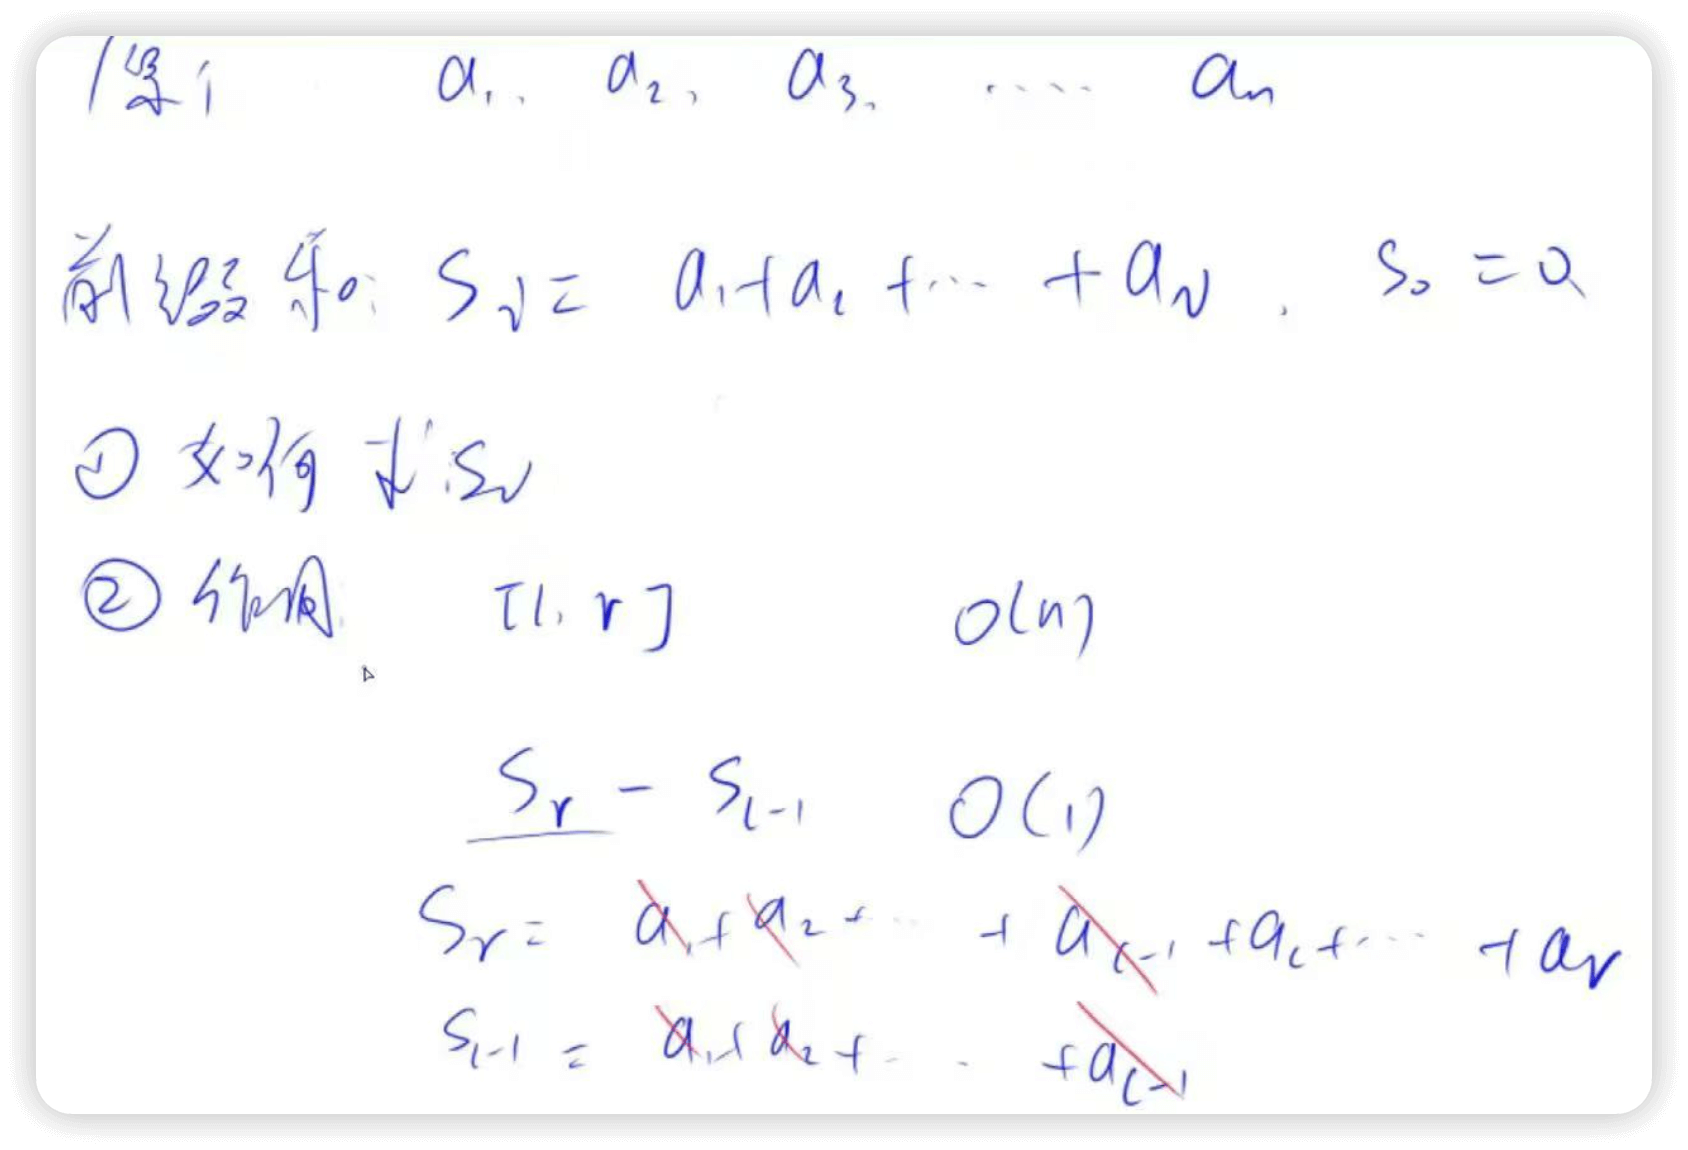 a₁, a₂, a₃, ···· aₙ
前缀和: Sᵢ = a₁+a₂ +··· + aᵢ. S₀ = 0
① 如何求 Sᵢ
② 作用: [l, r] O(n)
Sᵣ - Sₗ₋₁ O(1)
Sᵣ = a₁+a₂+··· + aₗ₋₁ +aₗ+··· +aᵣ
Sₗ₋₁ = a₁+a₂+··· +aₗ₋₁